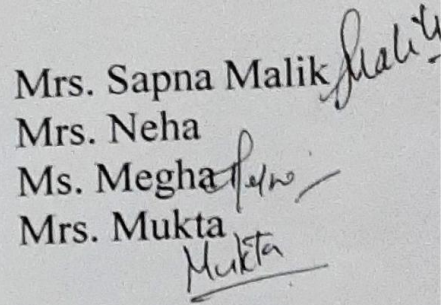 Mrs. Sapna Malik
Mrs. Neha
Ms. Megha
Mrs. Mukta
Mukta